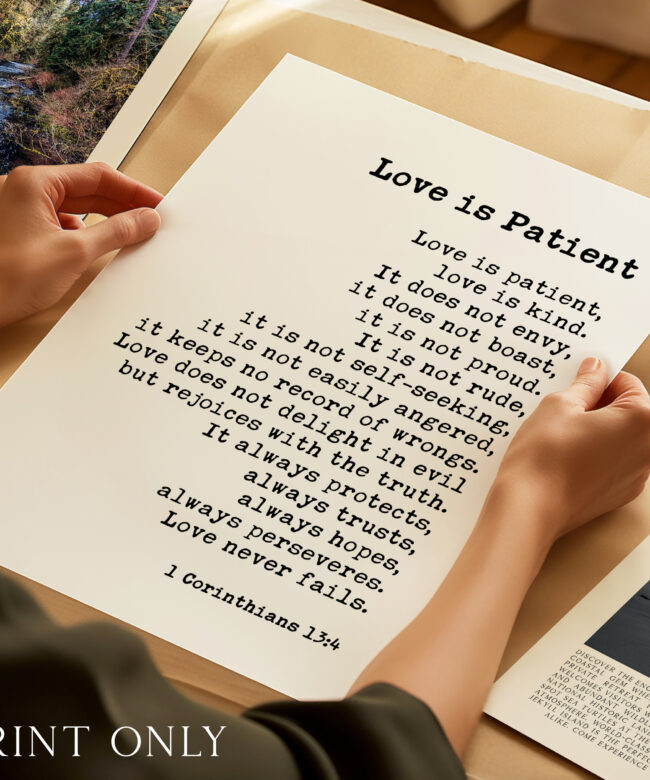 Love is Patient
Love is patient,
love is kind.
It does not envy,
it does not boast,
it is not proud.
It is not rude,
it is not self-seeking,
it is not easily angered,
it keeps no record of wrongs.
Love does not delight in evil
but rejoices with the truth.
It always protects,
always trusts,
always hopes,
always perseveres.
Love never fails.
1 Corinthians 13:4
DISCOVER THE
COASTAL GEM
PRIVATE RETREAT
WELCOMES VISITORS
AND ABUNDANT
NATIONAL HISTORIC
SPOT SEA TURTLES AT THE
ATMOSPHERE, WORLD-CLASS
JEKYLL ISLAND IS THE
ALIKE. COME EXPERIENCE
RINT ONLY